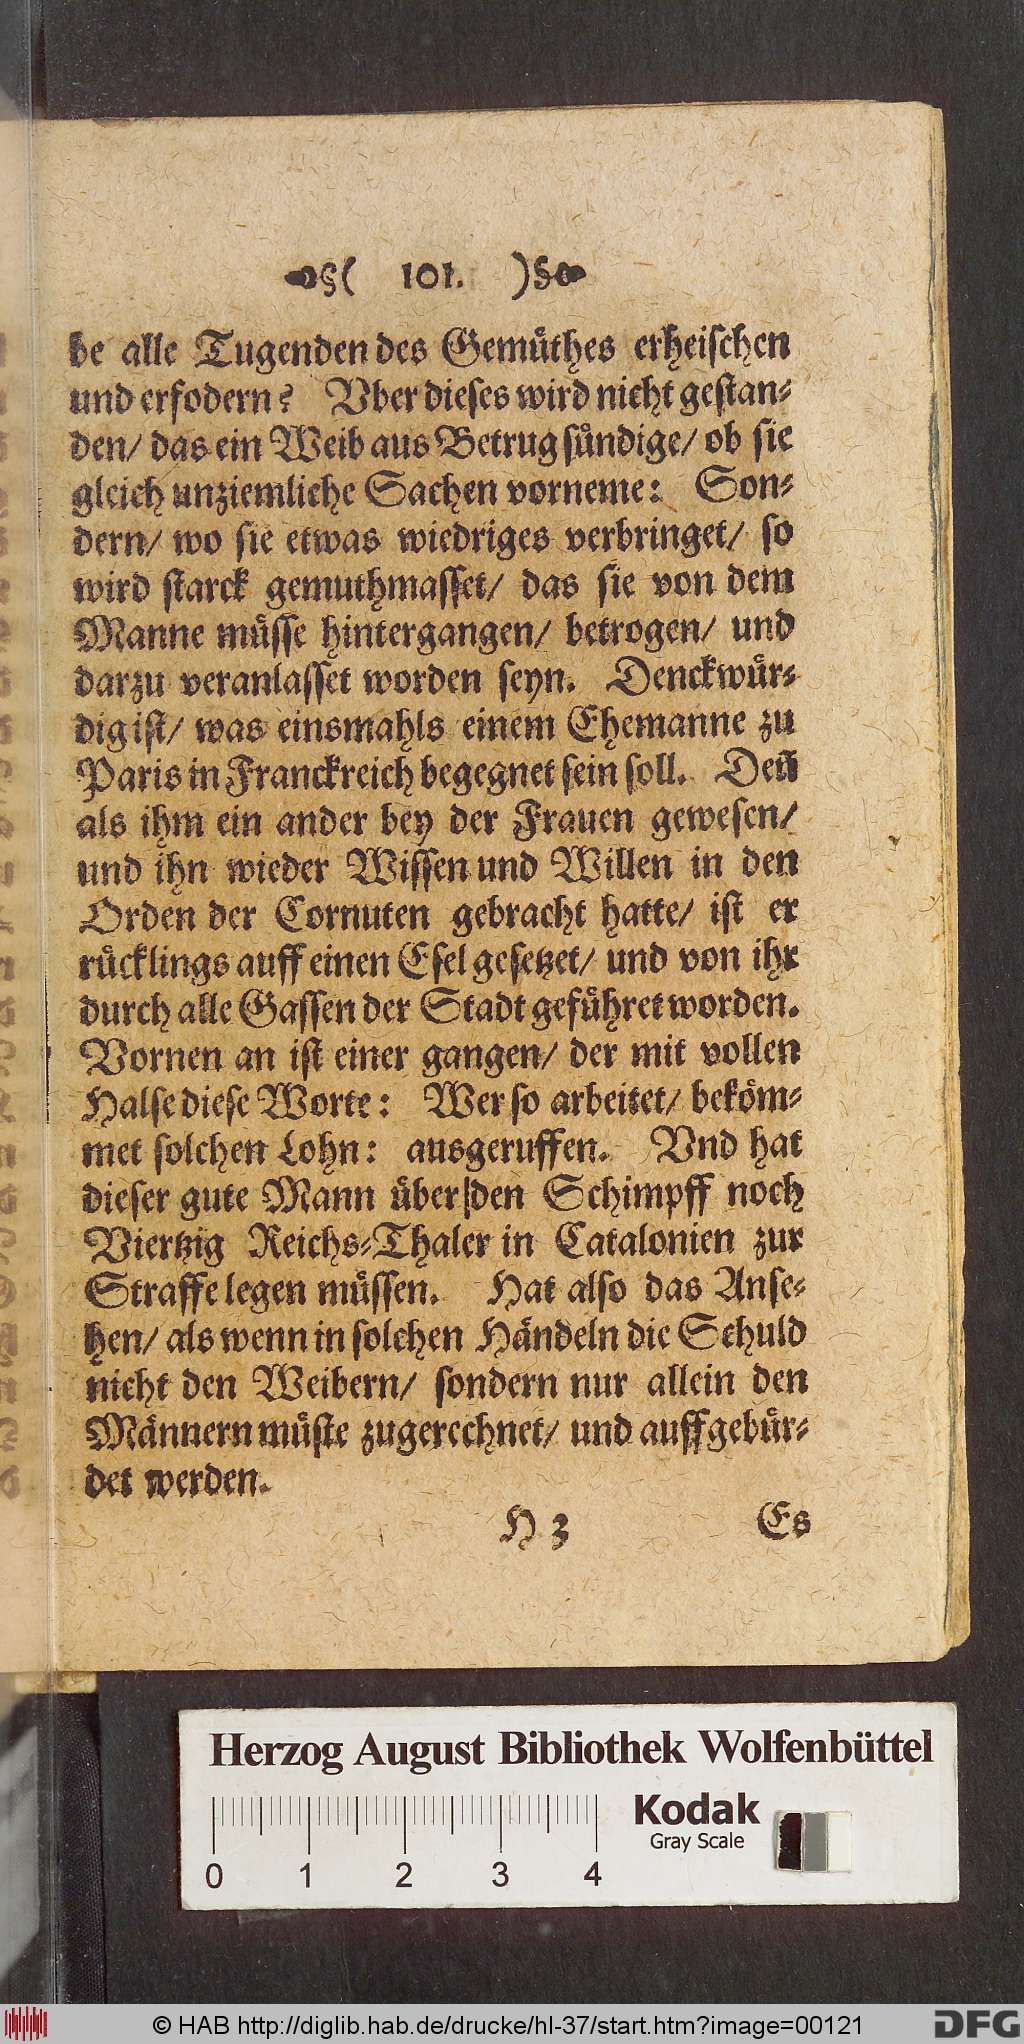 §( 101. )§
be alle Tugenden des Gemuͤthes erheischen
und erfodern? Vber dieses wird nicht gestan⸗
den/ das ein Weib aus Betrug suͤndige/ ob sie
gleich unziemliche Sachen vorneme: Son⸗
dern/ wo sie etwas wiedriges verbringet/ so
wird starck gemuthmasset/ das sie von dem
Manne muͤsse hintergangen/ betrogen/ und
darzu veranlasset worden seyn. Denckwuͤr⸗
dig ist/ was einsmahls einem Ehemanne zu
Paris in Franckreich begegnet sein soll. Deñ
als ihm ein ander bey der Frauen gewesen/
und ihn wieder Wissen und Willen in den
Orden der Cornuten gebracht hatte/ ist er
ruͤcklings auff einen Esel gesetzet/ und von ihr
durch alle Gassen der Stadt gefuͤhret worden.
Vornen an ist einer gangen/ der mit vollen
Halse diese Worte: Wer so arbeitet/ bekoͤm⸗
met solchen Lohn: ausgeruffen. Vnd hat
dieser gute Mann uͤber den Schimpff noch
Viertzig Reichs⸗Thaler in Catalonien zur
Straffe legen muͤssen. Hat also das Anse⸗
hen/ als wenn in solchen Haͤndeln die Schuld
nicht den Weibern/ sondern nur allein den
Maͤnnern muͤste zugerechnet/ und auffgebuͤr⸗
det werden.
H 3 Es
Herzog August Bibliothek Wolfenbüttel
Kodak
Gray Scale
0 1 2 3 4
© HAB http://diglib.hab.de/drucke/hl-37/start.htm?image=00121
DFG